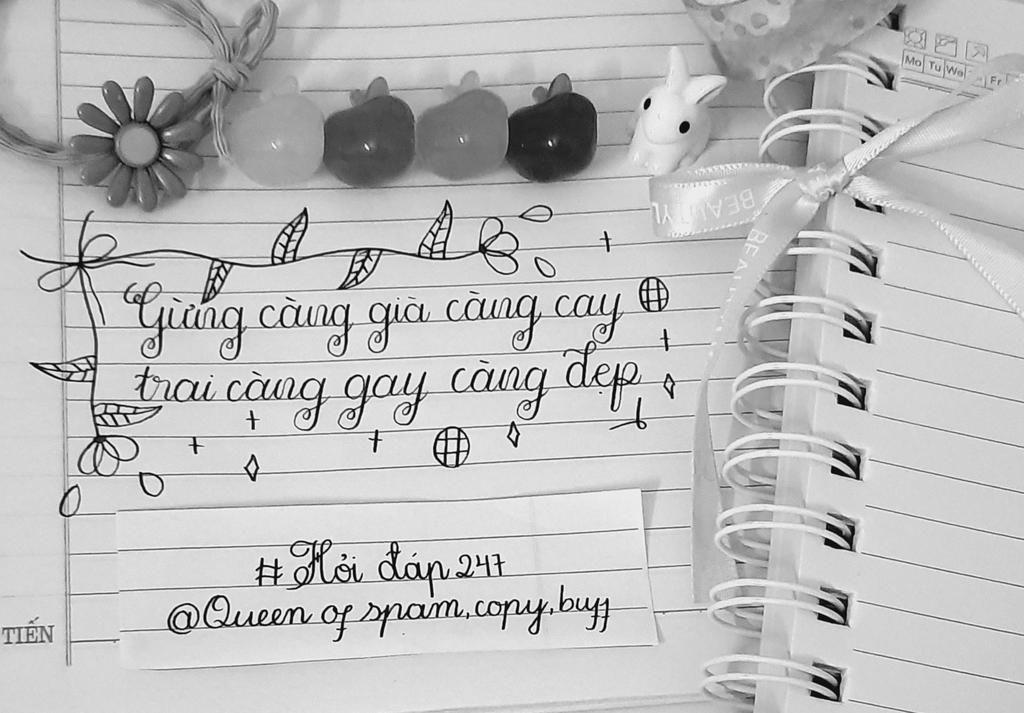 Mo Tu We Fr
BEAUTY
BEA
Gừng càng già càng cay
trai càng gay càng đẹp
# Hỏi đáp 247
@Queen of spam, copy, buff
TIẾN